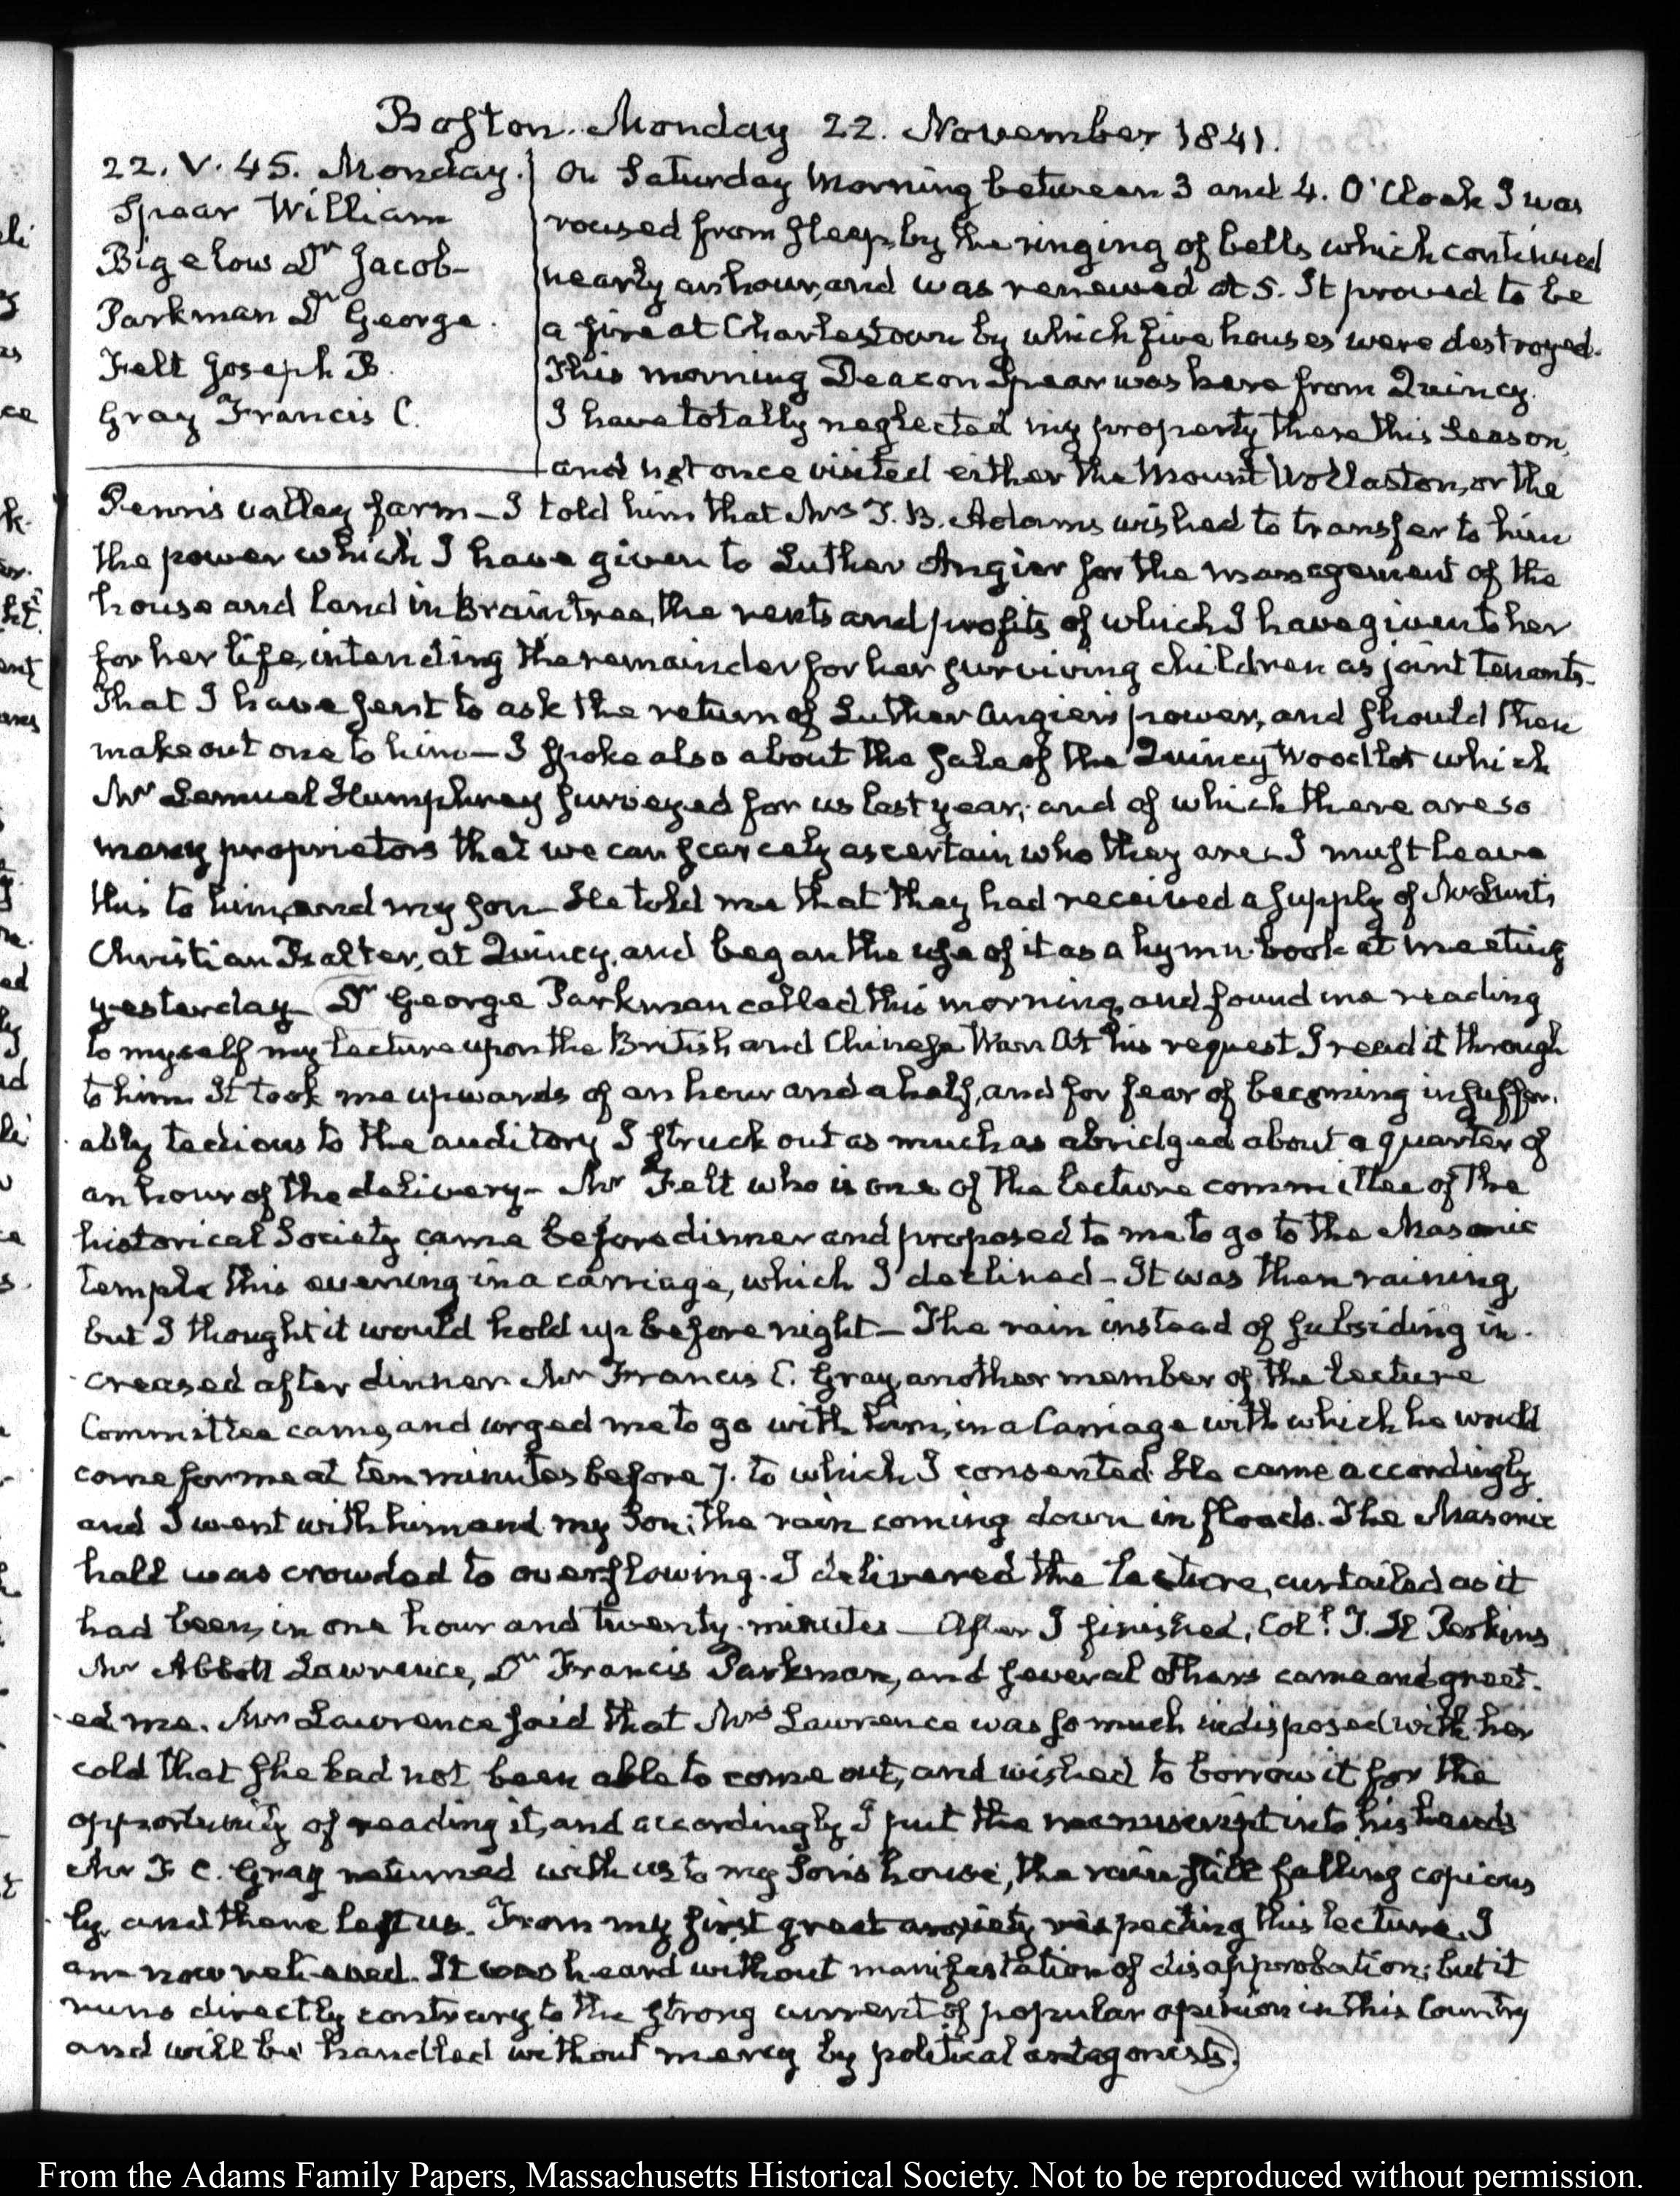 Boston. Monday 22. November 1841.
22. V. 45. Monday.
Spear William
Bigelow Dr Jacob-
Parkman Dr George.
Felt Joseph B.
Gray Francis C.
On Saturday Morning between 3 and 4. O'Clock I was
roused from sleep, by the ringing of bells which continued
nearly an hour, and was renewed at 5. It proved to be
a fire at Charlestown by which five houses were destroyed.
This morning Deacon Spear was here from Quincy.
I have totally neglected my property there this Season,
and not once visited either the Mount Wollaston, or the
Penn's valley farm – I told him that Mrs T. B. Adams wished to transfer to him
the power which I have given to Luther Angier for the management of the
house and land in Braintree, the rents and profits of which I have given to her
for her life, intending the remainder for her surviving children as joint tenants.
That I have sent to ask the return of Luther Angier's power, and should then
make out one to him – I spoke also about the sale of the Quincy Wood lot which
Mr Lemuel Humphrey surveyed for us last year; and of which there are so
many proprietors that we can scarcely ascertain who they are – I must leave
this to him, and my son – He told me that they had received a supply of Mr Lunt's
Christian Psalter, at Quincy, and began the use of it as a hymn-book at meeting
yesterday – Dr George Parkman called this morning, and found me reading
to myself my Lecture upon the British and Chinese War. At his request I read it through
to him. It took me upwards of an hour and a half, and for fear of becoming insuffer-
ably tedious to the auditory I struck out as much as abridged about a quarter of
an hour of the delivery – Mr Felt who is one of the lecture committee of the
historical Society came before dinner and proposed to me to go to the Masonic
temple this evening in a carriage, which I declined – It was then raining,
but I thought it would hold up before night – The rain instead of subsiding in-
creased after dinner Mr Francis C. Gray, another member of the lecture
Committee came, and urged me to go with him, in a Carriage with which he would
come for me at ten minutes before 7. to which I consented. He came accordingly
and I went with him and my Son; the rain coming down in floods. The Masonic
hall was crowded to overflowing. I delivered the lecture, curtailed as it
had been, in one hour and twenty minutes – After I finished, Coll. T. H. Perkins
Mr Abbott Lawrence, Dr Francis Parkman, and several others came and greet-
ed me. Mr Lawrence said that Mrs Lawrence was so much indisposed with her
cold that she had not been able to come out, and wished to borrow it for the
opportunity of reading it, and accordingly I put the manuscript into his hands
Mr F. C. Gray returned with us to my Son's house, the rain still falling copious
ly, and there left us. From my first great anxiety respecting this lecture, I
am now relieved. It was heard without manifestation of disapprobation; but it
runs directly contrary to the strong current of popular opinion in this Country
and will be handled without mercy by political antagonists.
From the Adams Family Papers, Massachusetts Historical Society. Not to be reproduced without permission.